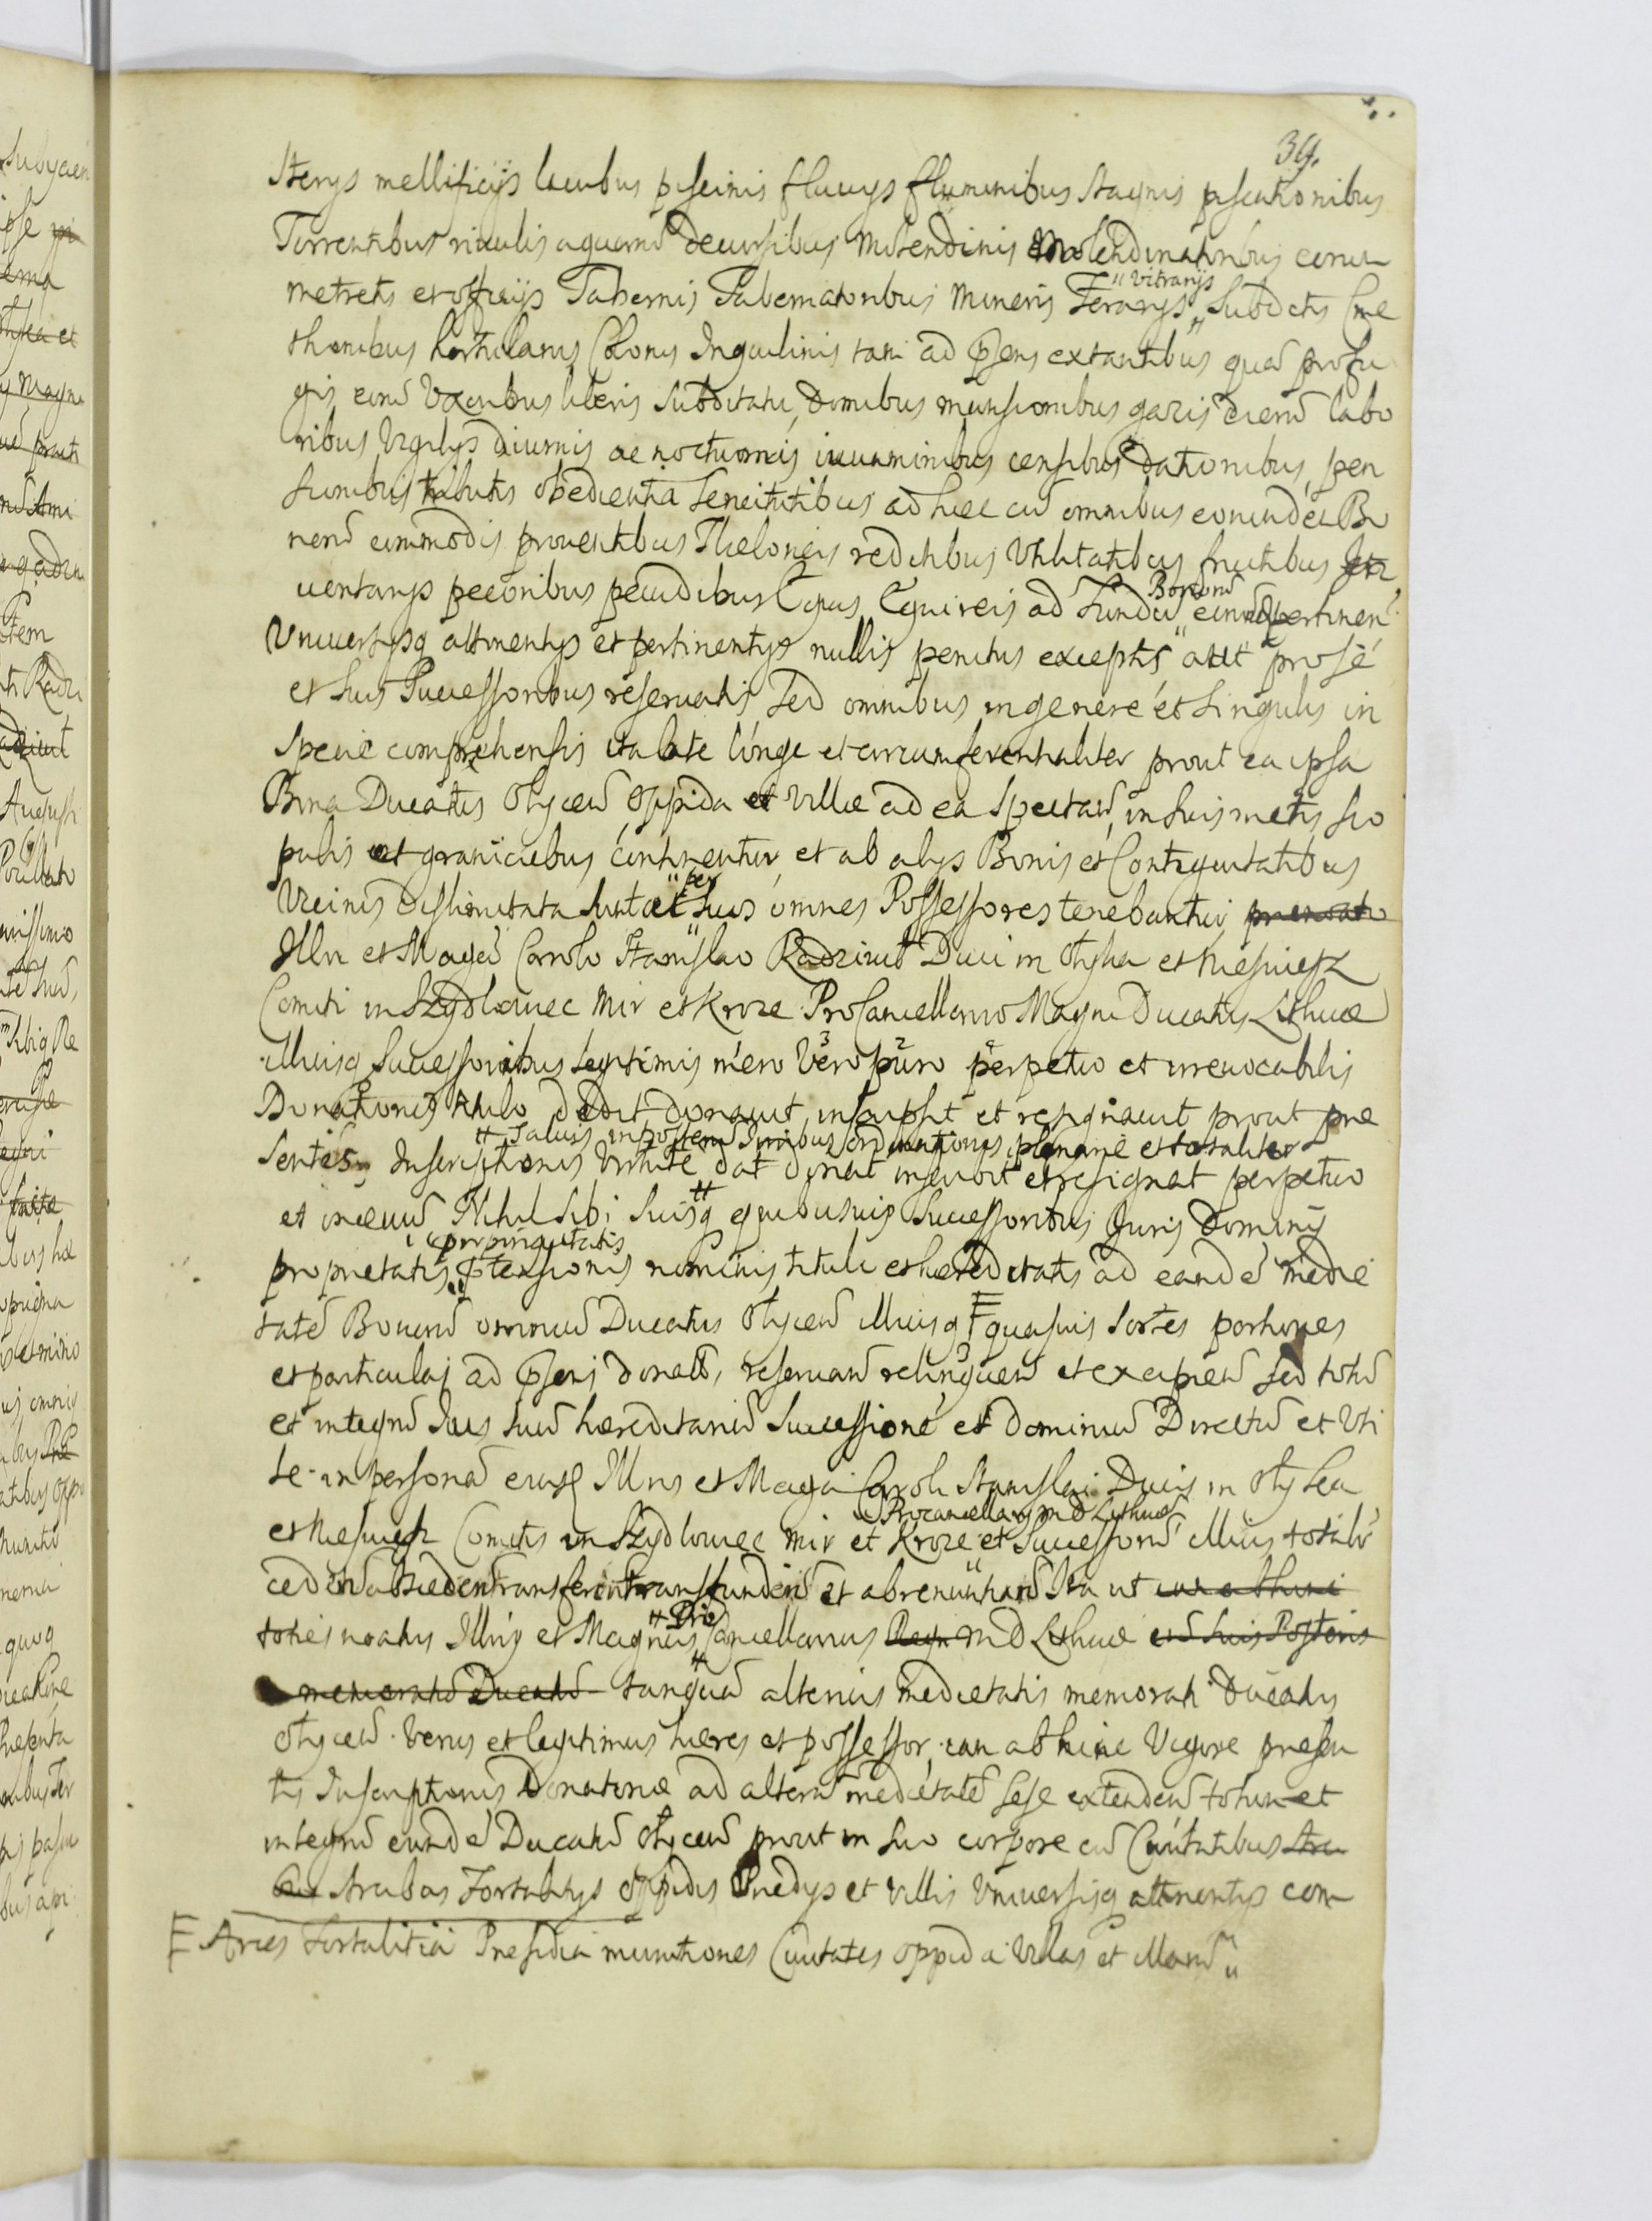 39.
sterys mellificijs lacubus piscinis fluuys fluminibus stagnis piscationibus
Torrentibus riuulis aquarum decursibus Molendinis Molendinatoribus eorum
metretis et officijs Tabernis Tabernatoribus mineris Ferarys " vitrarijs " Subdits Cme
thonibus hortulanis Colonis Inquilinis tam ad pns extantibus quam profu
gis eorum Vxoribus liberis Subditatu, domibus mansionibus gazis eierum labo
ribus Vigilys diurnis ac nocturnis iuuaminibus censibus dationibus, pen
sionibus tributis obedientia Seruitutibus ad hæc cum omnibus eorundem Bo
norum commodis prouentibus Theloneis reditibus Vtilitatibus fructibus
uentarys pecoribus pecudibus Equis Equireis ad Fundum Bonorum eorum pertinen
Vniuersisq attinentys et pertinentys nullis penitus exceptis aut pro se
et suis Successoribus reseruatis sed omnibus in genere et singulis in
specie comprehensis ita late longe et circumferentialiter prout ea ipsa
Bona Ducatus Olycen Oppida et Villæ ad ea spectan in suis metis sco
pulis et graniciebus continentur et ab alys Bonis et Contiguitatibus
Vicinis distinctata sunt et " per " suos omnes Possessores tenebantur
Illri et Magco Carolo Stanislao Radziwil Duci in Olyka et Nieswiesz
Comiti in Szydlowiec Mir et Kroze ProCancellario Magni Ducatus Lithuæ
illiusq Successoribus legitimis mero vero puro perpetuo et irreuocabilis
Donationis titulo dedit donauit inscripsit et resignauit prout præ
" Saluis Iuribus ordinationis plenarie et totaliter
sentis Inscriptionis Virtute dat donat inscribit et resignat perpetuo
et in æuum Nihil sibi suisq quibusuis Successoribus Iuris Dominij
proprietatis " propinquitatis " ptensionis nominis tituli et hæreditatis ad eandem medie
tatem Bonorum omnium Ducatus Olycen illiusq quasuis sortes portiones
et particulas ad pns donatum, reseruan relinquen et excipien sed totum
et integrum Ius suum hæreditarium successionem et dominium Directum et Vti
le in personam eiusd Illris et Magci Caroli Stanislai Ducis in Olyka
et Nieswiesz Comitis in Szydlowiec Mir et Kroze Procancellary M D Lithuæ et Successorum illius totalr
cedendo transferen transfunden et abrenuntian Ita ut
toties noatus Illris et Magcus Pro Cancellarius M D Lithuæ cum suis Posteris
memoratum Ducatum tanquam alterius medietatis memorati Ducatus
Olycen verus et legitimus hæres et possessor iam ab hinc Vigore presen
tis Inscriptionis Donatoriæ ad alteram medietatem sese extenden totum et
integrum eundem Ducatum Olycen prout in suo corpore cum Ciuitatibus
Arcibus Fortalitys oppidis Prædys et Villis Vniuersisq attinentys com
Arces Fortalitia Presidia munitiones Ciuitates oppida Villas et illarum "